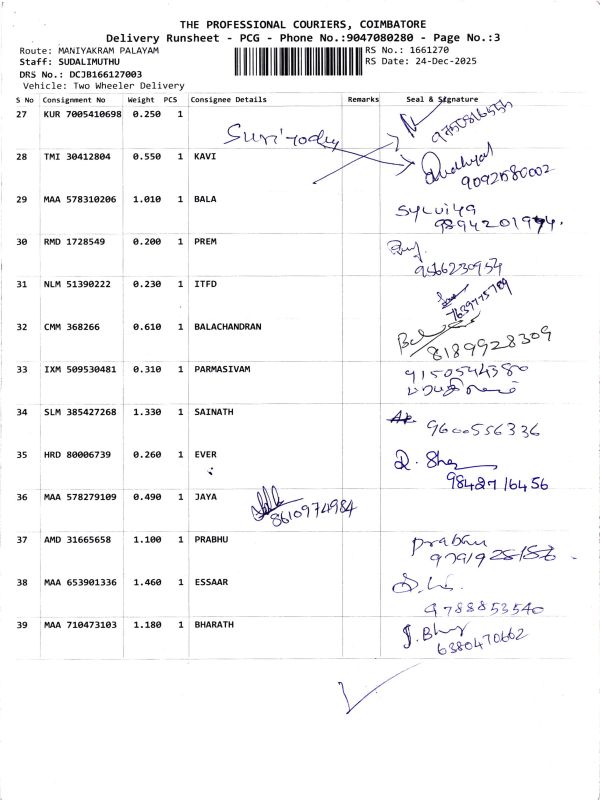 THE PROFESSIONAL COURIERS, COIMBATORE
Delivery Runsheet - PCG - Phone No.:9047080280 - Page No.:3
Route: MANIYAKRAM PALAYAM RS No.: 1661270
Staff: SUDALIMUTHU RS Date: 24-Dec-2025
DRS No.: DCJB166127003
Vehicle: Two Wheeler Delivery
S No Consignment No Weight PCS Consignee Details Remarks Seal & Signature
27 KUR 7005410698 0.250 1
9750816555
28 TMI 30412804 0.550 1 KAVI
9092580002
29 MAA 578310206 1.010 1 BALA
Sylviya
30 RMD 1728549 0.200 1 PREM
9566230954
31 NLM 51390222 0.230 1 ITFD
7639775789
32 CMM 368266 0.610 1 BALACHANDRAN
8189928309
33 IXM 509530481 0.310 1 PARMASIVAM
9150544380
34 SLM 385427268 1.330 1 SAINATH
9600556336
35 HRD 80006739 0.260 1 EVER
9842716456
36 MAA 578279109 0.490 1 JAYA
8610974984
37 AMD 31665658 1.100 1 PRABHU
Prabhu
38 MAA 653901336 1.460 1 ESSAAR
9788853540
39 MAA 710473103 1.180 1 BHARATH
6380470662